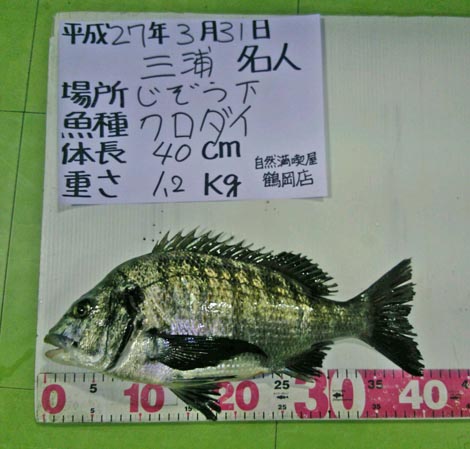 平成27年3月31日
三浦 名人
場所 じぞう下
魚種 クロダイ
体長 40cm
重さ 1.2Kg
自然満喫屋
鶴岡店
0 5 10 15 20 25 30 35 40